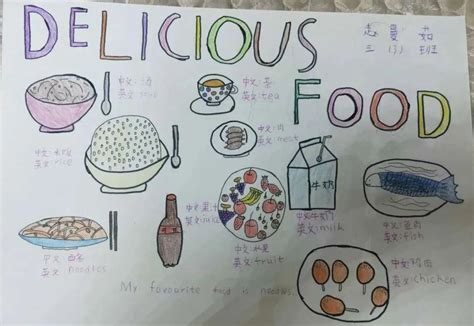 DELICIOUS
FOOD
三 (3) 班
中文:汤
英文:soup
中文:茶
英文:tea
中文:肉
英文:meat
中文:米饭
英文:rice
牛奶
中文:牛奶
英文:milk
中文:鱼肉
英文:fish
中文:果汁
英文:juice
中文:水果
英文:fruit
中文:面条
英文:noodles
中文:鸡肉
英文:chicken
My favourite food is noodles.